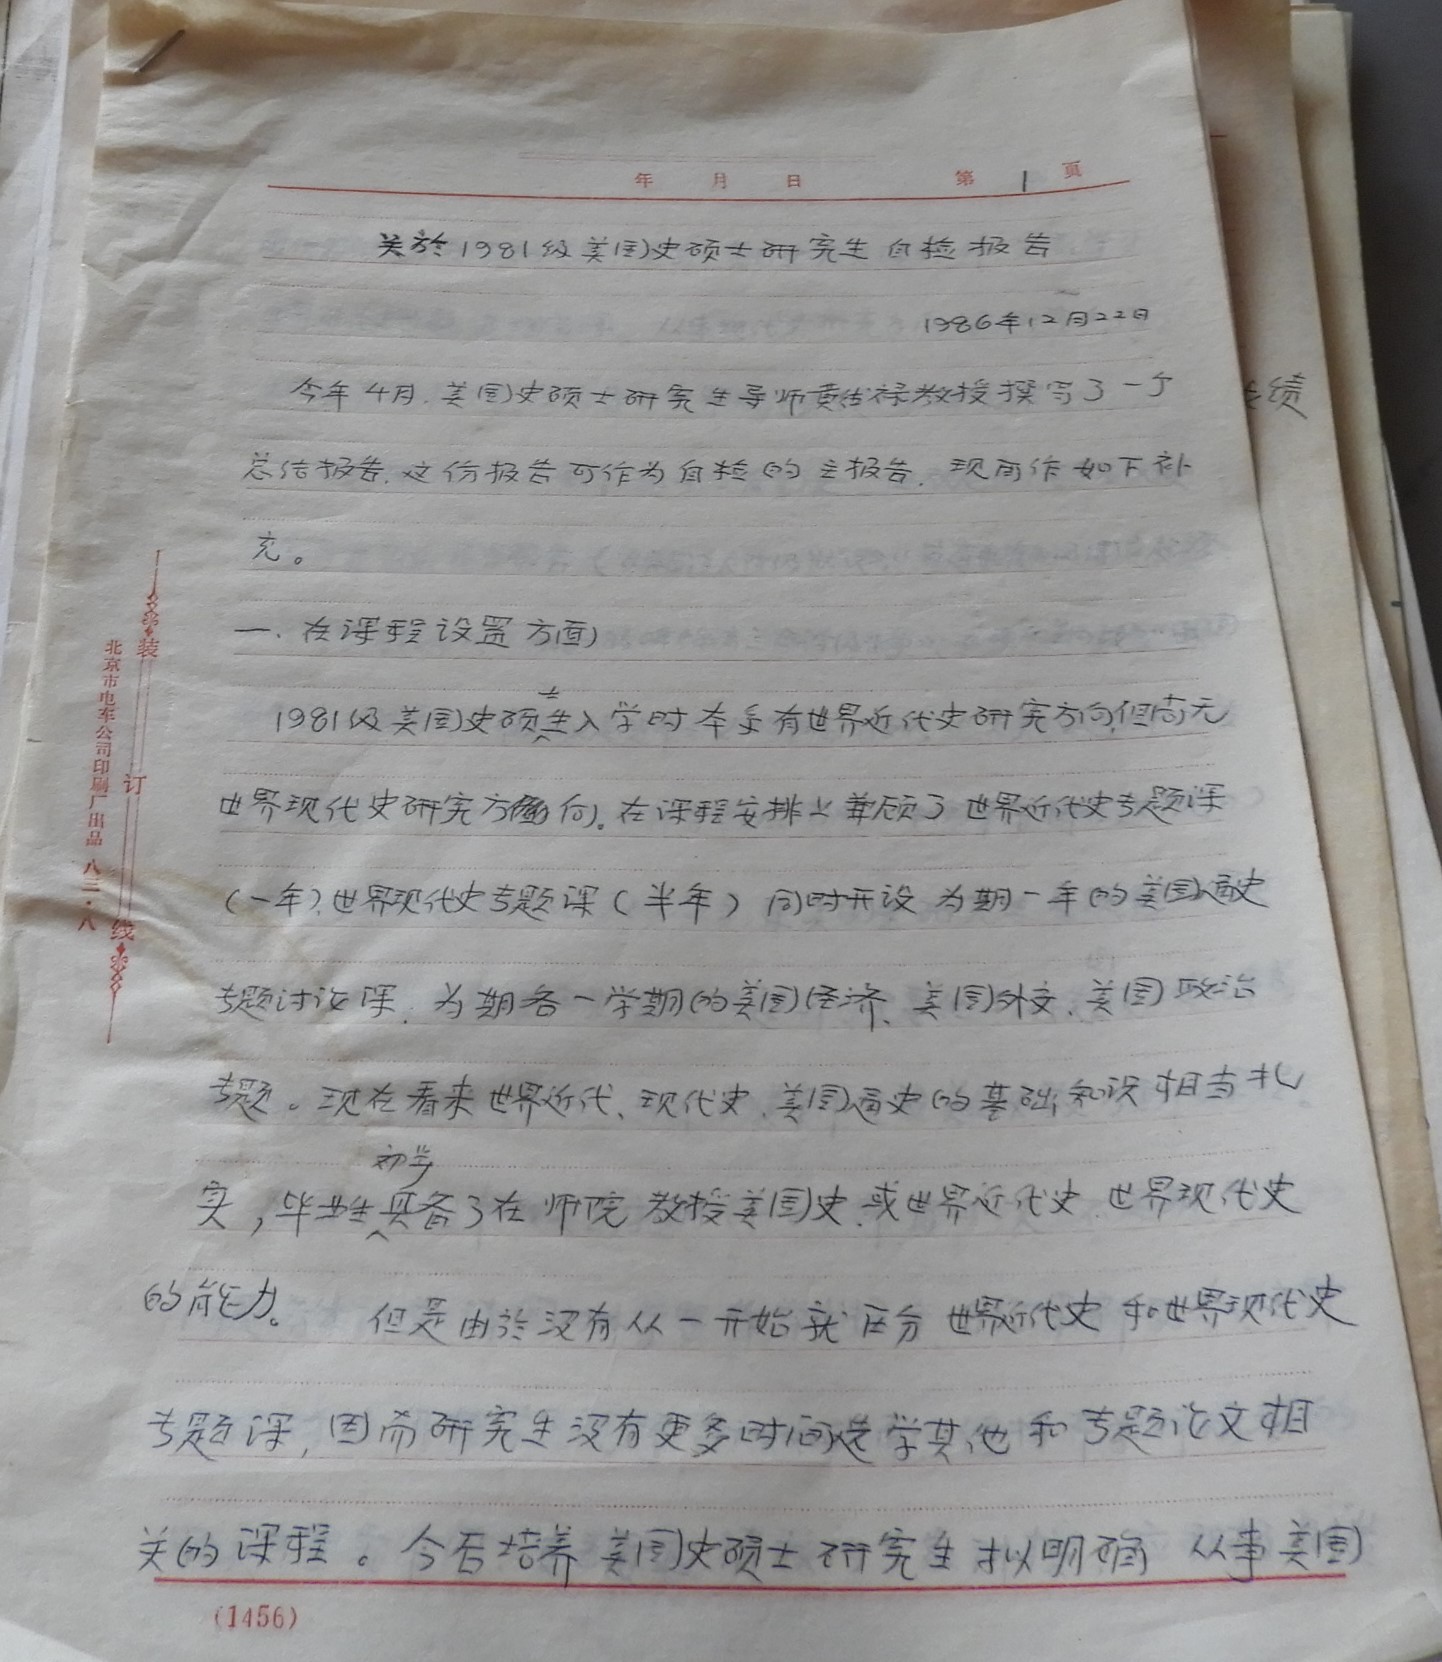 年 月 日 第 1 页
关於1981级美国史硕士研究生自检报告
1986年12月22日
今年4月.美国史硕士研究生导师黄绍禄教授撰写了一个
总结报告.这份报告可作为自检的主报告.现再作如下补
充。
一.在课程设置方面
士
1981级美国史硕生入学时本系有世界近代史研究方向,但尚无
世界现代史研究方向。在课程安排上兼顾了世界近代史专题课
(一年).世界现代史专题课(半年)同时开设为期一年的美国通史
专题讨论课.为期各一学期的美国经济、美国外交、美国政治
专题。现在看来世界近代、现代史、美国通史的基础知识相当扎
初步
实,毕业生具备了在师院教授美国史.或世界近代史.世界现代史
的能力。 但是由於没有从一开始就区分世界近代史和世界现代史
专题课,因而研究生没有更多时间选学其他和专题论文相
关的课程。今后培养美国史硕士研究生拟明确从事美国
(1456)
装 订 线
北京市电车公司印刷厂出品 八三·八
绩